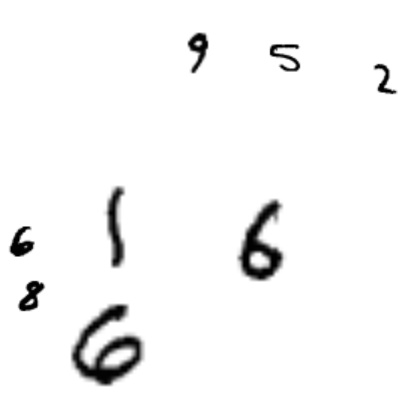 9 5 2
6 1 6
8
6